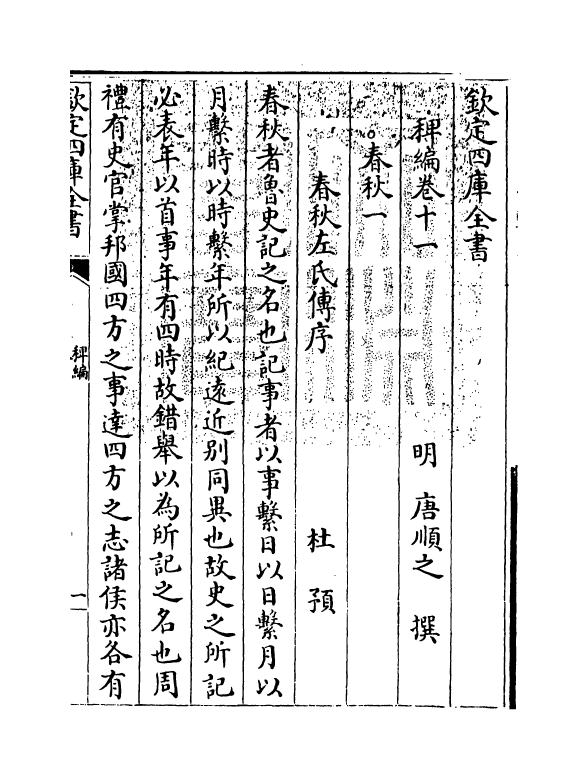 欽定四庫全書
稗編卷十一
明 唐順之 撰
。春秋一
春秋左氏傳序
杜預
春秋者魯史記之名也記事者以事繫日以日繫月以
月繫時以時繫年所以紀遠近別同異也故史之所記
必表年以首事年有四時故錯舉以為所記之名也周
禮有史官掌邦國四方之事達四方之志諸侯亦各有
欽定四庫全書
稗編
一